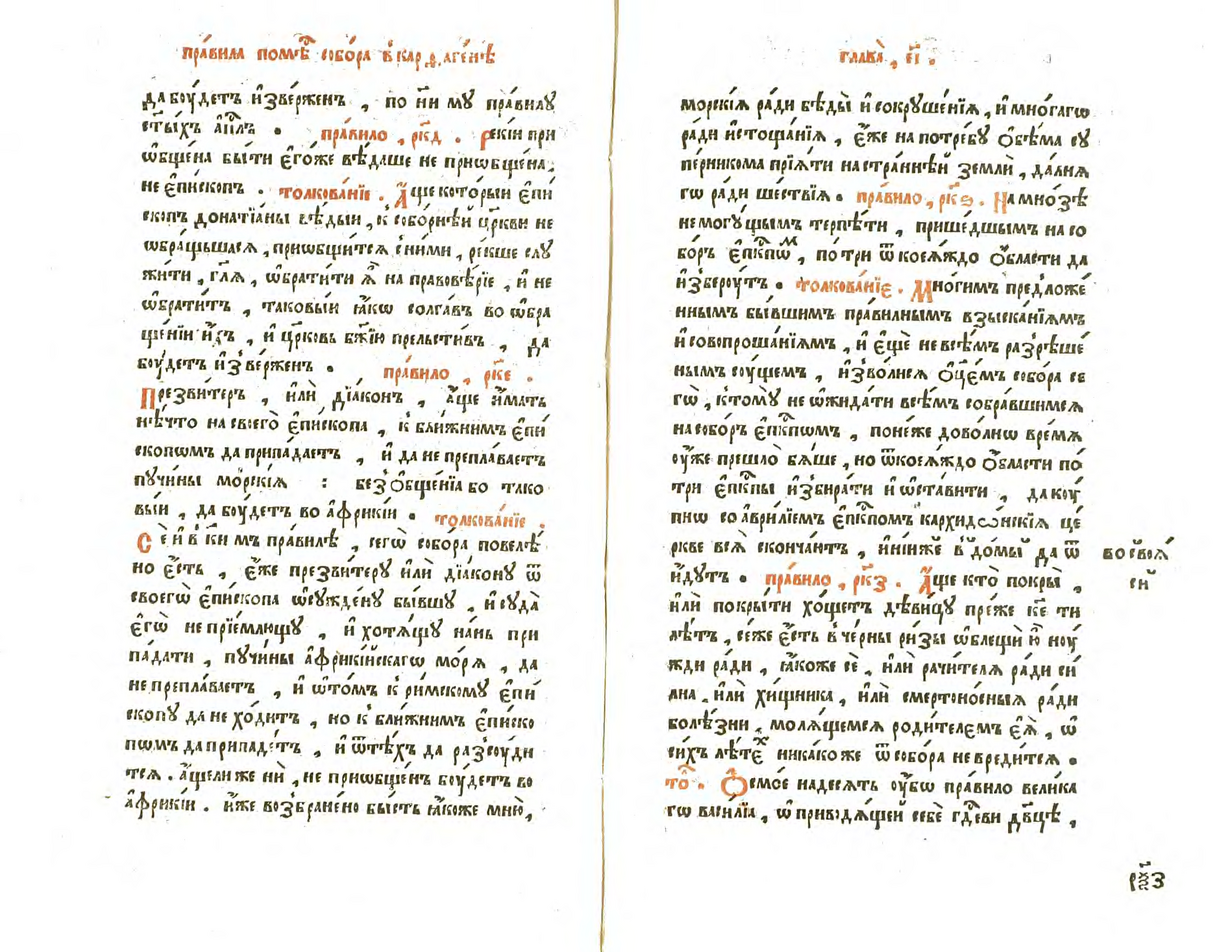 пра́вила помѣ́ст собо́ра в̾кар.ѳ.аге́нѣ
да боу́детъ и҆зве́рженъ , по н҃и му пра́вилу
ст҃ы́хъ а҆пл҃ъ . пра́вило , рк҃д . рекі́и при
ѡ҆бще́на бы́ти є҆го́же вѣ́даше не приѡбще́на ,
не є҆пи́скопъ . толкова́нїе . А҆́ще кото́рыи є҆пи́
скопъ донатїа́ны вѣ́дыи , к̾ собо́рнѣй цр҃кви не
ѡ҆бра́щьшася , приѡбщи́тся с̾ни́ми , ре́кше слу
жи́ти , гл҃я , ѡ҆брати́ти ѧ҆̀ на правовѣ́рїе , и҆ не
ѡ҆брати́тъ , таковы́и ꙗ҆́кѡ солга́въ во ѡ҆бра
ще́нїи и҆́хъ , и҆ цр҃ковь бж҃їю прельсти́въ , да
боу́детъ и҆зве́рженъ . пра́вило , рк҃е .
Презви́теръ , и҆лѝ дїа́конъ , а҆́ще и҆́мать
нѣ́что на своего̀ є҆пи́скопа , к̾ бли́жнимъ є҆пи́
скопѡмъ да припа́даетъ , и҆ да не препла́ваетъ
пучи́ны мо́рскїя : без̾ ѻ҆бще́нїа бо тако
вы́и , да боу́детъ во а҆́фрикїи . толкова́нїе .
Се́ и҆ в̾ к҃и мъ пра́вилѣ , сегѡ̀ собо́ра повелѣ́
но є҆́сть , є҆́же презви́теру и҆лѝ дїа́кону ѿ
своегѡ̀ є҆пи́скопа ѡ҆сужде́ну бы́вшу , и҆ суда̀
є҆гѡ̀ не прїе́млющу , и҆ хотя́щу на́нь при
па́дати , пучи́ны а҆фрикі́искагѡ мо́ря , да
не препла́ваетъ , и҆ ѡ҆то́мъ к̾ ри́мскому є҆пи́
скопу да не хо́дитъ , но к̾ бли́жнимъ є҆пи́ско
пѡмъ да припаде́тъ , и҆ ѿ тѣ́хъ да разсу́ди
тся . а҆́ще ли же ни̑ , не приѡбще́нъ боу́детъ во
а҆́фрикїи . и҆́же возбране́но бы́сть ꙗ҆́коже мню̀ ,
глава̀ , є҃і .
морскі́я ра́ди бѣды̀ и҆ сокруше́нїя , и҆ мно́гагѡ
ра́ди и҆стоща́нїя , є҆́же на потре́бу ѻ҆бѣ́ма су
пе́рникома прїя́ти на стра́ннѣй землѝ , да́лня
гѡ ра́ди ше́ствїя . пра́вило , рк҃ѕ . На мно́зѣ
не могу́щымъ терпѣ́ти , прише́дшымъ на со
бо́ръ є҆пк҃пѡм , по трѝ ѿ коея́ждо ѻ҆́бласти да
и҆зберу́тъ . толкова́нїе . Мно́гимъ предложе́
ннымъ бы́вшимъ пра́вилнымъ взыска́нїямъ
и҆ совопроша́нїямъ , и҆ є҆щѐ не всѣ́мъ разрѣше́
нымъ сущемъ , и҆зво́лися ѻ҆тце́мъ собо́ра се
гѡ̀ , к̾тому̀ не ѡ҆жида́ти всѣ́мъ собра́вшимся
на собо́ръ є҆пк҃пѡмъ , поне́же дово́лнѡ вре́мя
оу҆́же прешло̀ бя́ше , но ѿ коея́ждо ѻ҆́бласти по́
три є҆пк҃пы и҆збира́ти и҆ ѡ҆ста́вити , да коу́
пнѡ со а҆ври́лїемъ є҆пк҃помъ кархидѡ́нскїя це́
ркве вся̀ сконча́ютъ , и҆ни́и же в̾ до́мы̀ да ѿ
и҆ду́тъ . пра́вило , рк҃з . А҆́ще кто̀ покры̀ ,
и҆лѝ покры́ти хо́щетъ дѣви́цу пре́же к҃е ти
лѣ́тъ , се́же є҆́сть в̾ че́рны ри́зы ѡ҆блещѝ ю҆̀ ноу́
жди ра́ди , ꙗ҆́коже се̑ , и҆лѝ рачи́теля ра́ди си́
лна , и҆лѝ хи́щника , и҆лѝ смертоно́сныя ра́ди
болѣ́зни , моля́щемся роди́телемъ є҆я̀ , ѡ҆
си́хъ лѣ́тех ника́коже ѿ собо́ра не вреди́тся .
то҃ . Ѻ҆смо́е на́десять оу҆́бѡ пра́вило вели́ка
гѡ васи́лїа , ѡ҆ приводя́щей себѐ гд҇еви дв҃цѣ ,
во своя́
си̑
рх҃з